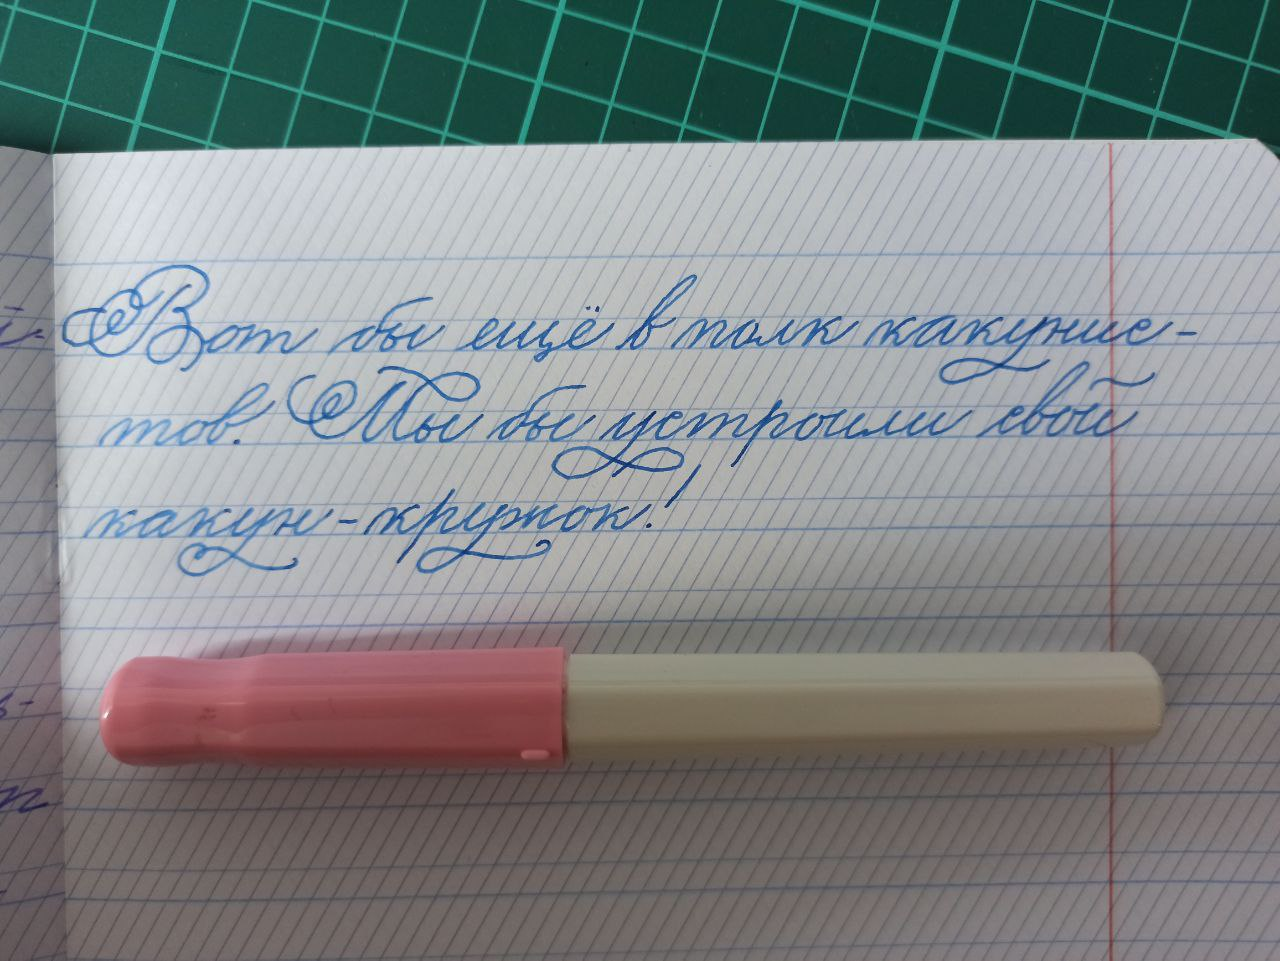 Вот бы ещё в полк какунис-
тов. Мы бы устроили свой
какун-кружок!